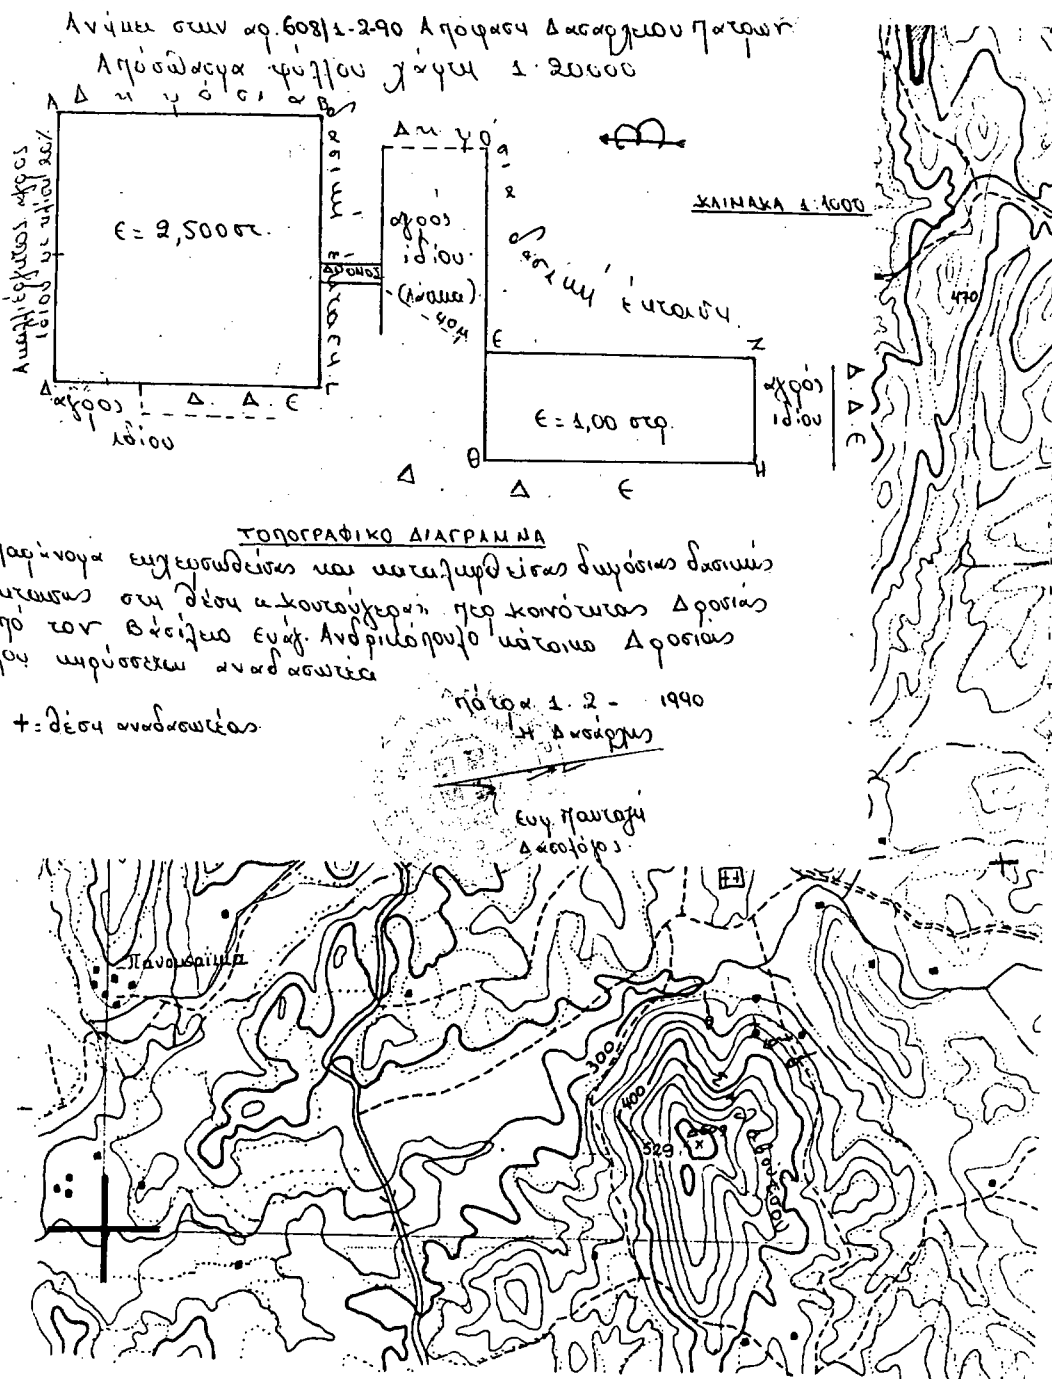 Ανήκει στην αρ. 608/1-2-90 Απόφαση Δασαρχείου Πατρών
Απόσπασμα φύλλου χάρτη 1:20000
Α Δημόσια Β
Δασική έκταση
Ακαλλιέργητος αγρός
ιδίου με κλίση 20%
Ε= 2,500 στ.
ΔΡΟΜΟΣ
Δ Γ
αγρός Δ. Δ. Ε
ιδίου
Δημό
σια
αγρός
ιδίου
(λάκκα)
40μ
δασική έκταση
ΚΛΙΜΑΚΑ 1:1000
Ε Ζ
Ε= 1,00 στρ.
Θ Η
αγρός
ιδίου
Δ. Δ. Ε
Δ. Δ. Ε
ΤΟΠΟΓΡΑΦΙΚΟ ΔΙΑΓΡΑΜΜΑ
εκχερσωθείσας και καταληφθείσας δημόσιας δασικής
στη θέση «Κουτούγερα» περ. κοινότητας Δροσιάς
τον Βασίλειο Ευάγ. Ανδρικόπουλο κάτοικο Δροσιάς
κηρύσσεται αναδασωτέα
+ = θέση αναδασωτέας
Πάτρα 1. 2 - 1990
Η Δασάρχης
Ευγ. Πανταζή
Δασολόγος
470
Πανουσαίικα
300
400
529